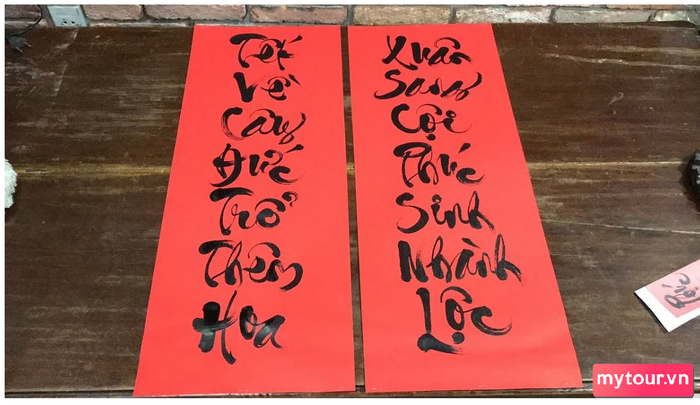 Tết
Về
Cây
Đức
Trổ
Thêm
Hoa
Xuân
Sang
Cội
Phúc
Sinh
Nhành
Lộc
mytour.vn